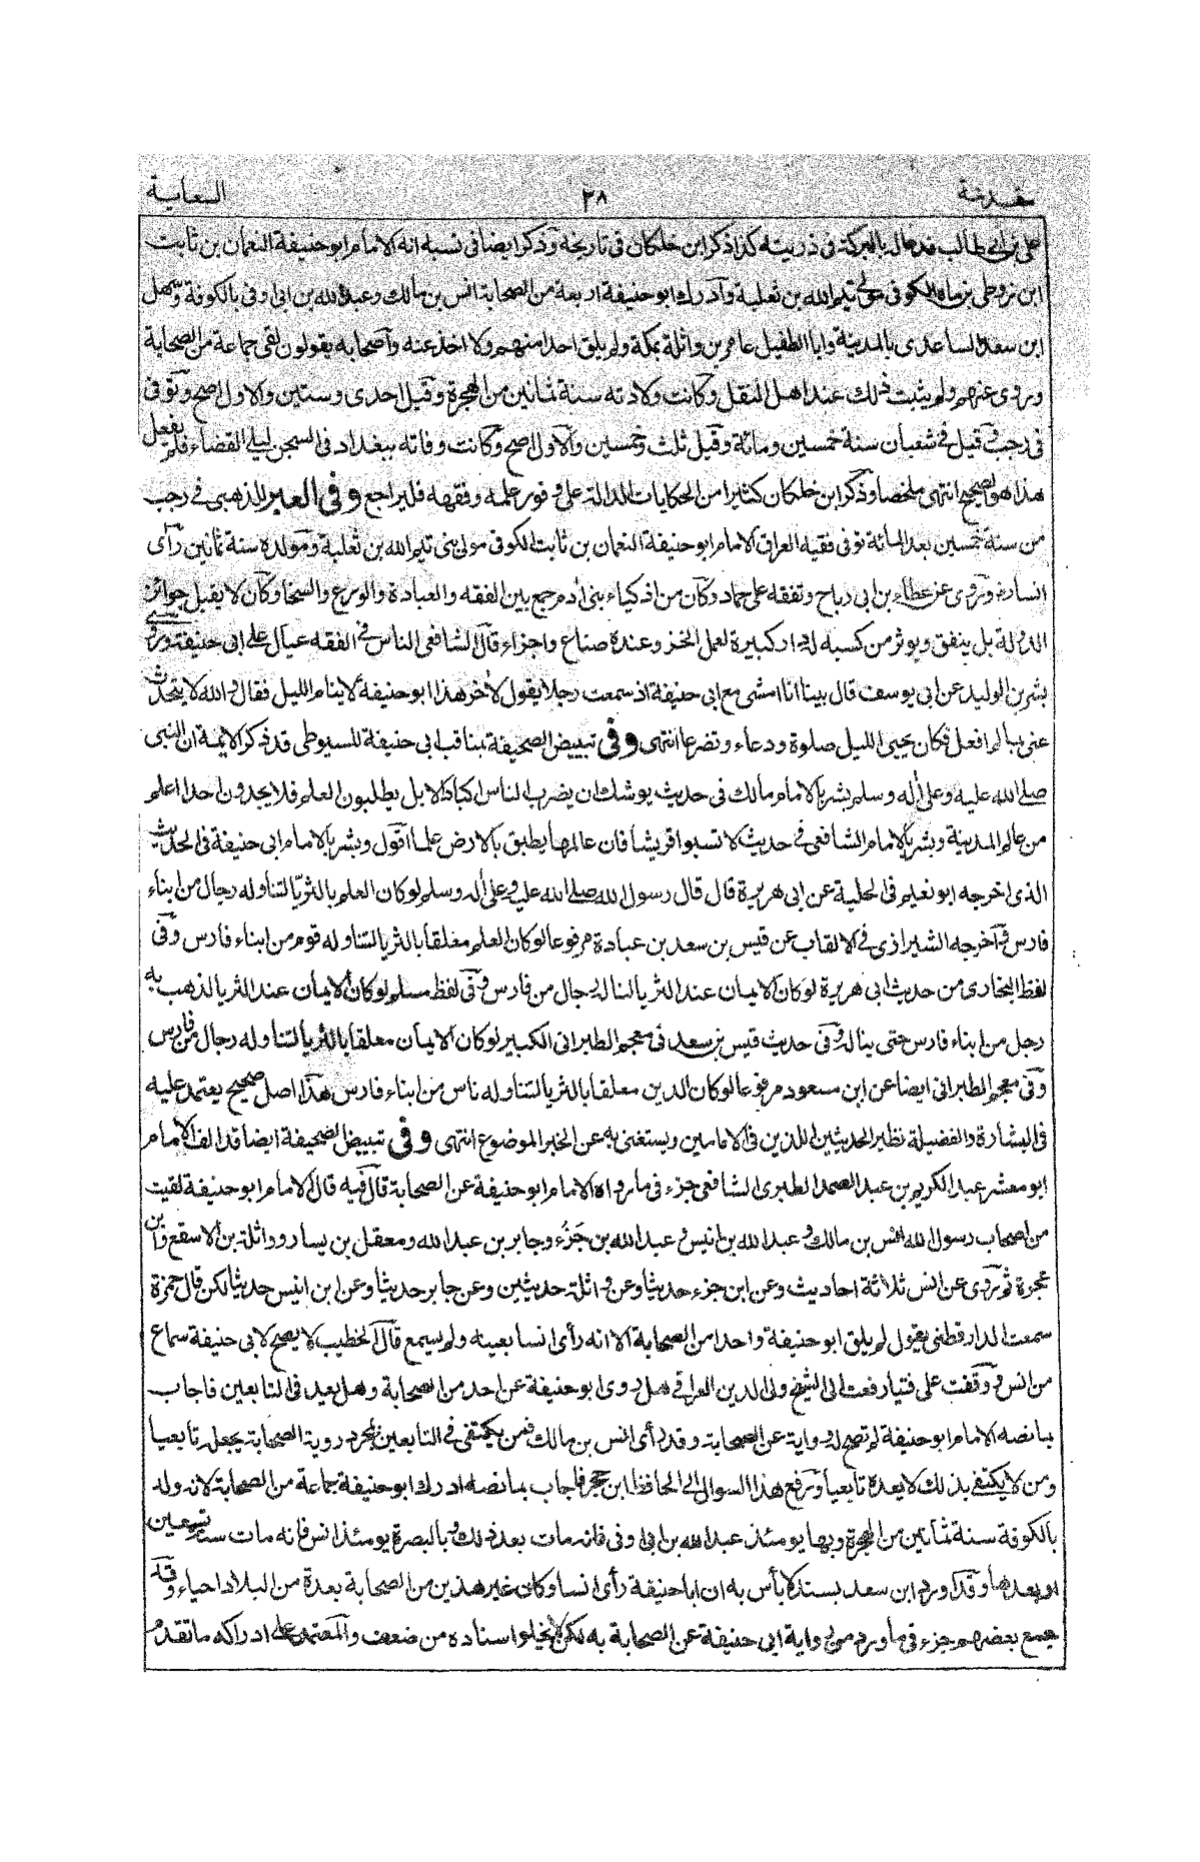 مقدمة ٣٨ السعاية
على بن ابى طالب فدعا له بالبركة فى ذريته كذا ذكر ابن خلكان فى تاريخه وذكر ايضا فى نسبه انه الامام ابو حنيفة النعمان بن ثابت
ابن زوطى بن ماه الكوفى مولى تيم الله بن ثعلبة وادرك ابو حنيفة اربعة من الصحابة انس بن مالك وعبد الله بن ابى اوفى بالكوفة وسهل
ابن سعد الساعدى بالمدينة وابا الطفيل عامر بن واثلة بمكة ولم يلق احدا منهم ولا اخذ عنه واصحابه يقولون لقى جماعة من الصحابة
وروى عنهم ولم يثبت ذلك عند اهل النقل وكانت ولادته سنة ثمانين من الهجرة وقيل احدى وستين والاول اصح وتوفى
فى رجب وقيل فى شعبان سنة خمسين ومائة وقيل ثلث وخمسين والاول اصح وكانت وفاته ببغداد فى السجن ليلى القضاء فلم يفعل
هذا هو الصحيح انتهى ملخصا وذكر ابن خلكان كثيرا من الحكايات الدالة على وفور علمه وفقهه فليراجع وفى العبر للذهبى فى رجب
من سنة خمسين بعد المائة توفى فقيه العراق الامام ابو حنيفة النعمان بن ثابت الكوفى مولى بنى تيم الله بن ثعلبة ومولده سنة ثمانين رأى
انسا وروى عن عطاء بن ابى رباح وتفقه على حماد وكان من اذكياء بنى ادم جمع بين الفقه والعبادة والورع والسخا وكان لا يقبل جوائز
الدولة بل ينفق ويوثر من كسبه له دار كبيرة لعمل الخز وعنده صناع واجراء قال الشافعى الناس فى الفقه عيال على ابى حنيفة وروى
بشر بن الوليد عن ابى يوسف قال بينا انا امشى مع ابى حنيفة اذ سمعت رجلا يقول لأخر هذا ابو حنيفة لا ينام الليل فقال والله لا يتحدث
عنى بما لم افعل فكان يحيى الليل صلوة ودعاء وتضرعا انتهى وفى تبييض الصحيفة بمناقب ابى حنيفة للسيوطى قد ذكر الايمة ان النبى
صلى الله عليه وعلى أله وسلم بشر بالامام مالك فى حديث يوشك ان يضرب الناس اكباد الابل يطلبون العلم فلا يجدون احدا اعلم
من عالم المدينة وبشر بالامام الشافعى فى حديث لا تسبوا قريشا فان عالمها يطبق بالارض علما اقول وبشر بالامام ابى حنيفة فى الحديث
الذى اخرجه ابو نعيم فى الحلية عن ابى هريرة قال قال رسول الله صلى الله عليه وعلى أله وسلم لو كان العلم بالثريا لتناوله رجال من ابناء
فارس واخرجه الشيرازى فى الالقاب عن قيس بن سعد بن عبادة مرفوعا لو كان العلم معلقا بالثريا لتناوله قوم من ابناء فارس وفى
لفظ البخارى من حديث ابى هريرة لو كان الايمان عند الثريا لناله رجال من فارس وفى لفظ مسلم لو كان الايمان عند الثريا لذهب به
رجل من ابناء فارس حتى يناله وفى حديث قيس بن سعد فى معجم الطبرانى الكبير لو كان الايمان معلقا بالثريا لتناوله رجال من فارس
وفى معجم الطبرانى ايضا عن ابن مسعود مرفوعا لو كان الدين معلقا بالثريا لتناوله ناس من ابناء فارس هذا اصل صحيح يعتمد عليه
فى البشارة والفضيلة نظير الحديثين اللذين فى الامامين ويستغنى به عن الخبر الموضوع انتهى وفى تبييض الصحيفة ايضا قد الف الامام
ابو معشر عبد الكريم بن عبد الصمد الطبرى الشافعى جزء فى ما رواه الامام ابو حنيفة عن الصحابة قال فيه قال الامام ابو حنيفة لقيت
من اصحاب رسول الله انس بن مالك و عبد الله بن انيس و عبد الله بن جزء وجابر بن عبد الله ومعقل بن يسار وواثلة بن الاسقع وبنت
عجرة ثم روى عن انس ثلاثة احاديث وعن ابن جزء حديثا وعن واثلة حديثين وعن جابر حديثا وعن ابن انيس حديثا لكن قال حمزة
سمعت الدارقطنى يقول لم يلق ابو حنيفة واحدا من الصحابة الا انه رأى انسا بعينه ولم يسمع قال الخطيب لا يصح لابى حنيفة سماع
من انس ووقفت على فتيا رفعت الى الشيخ ولى الدين العراقى هل روى ابو حنيفة عن احد من الصحابة وهل يعد فى التابعين فاجاب
بما نصه الامام ابو حنيفة لم تصح له رواية عن الصحابة وقد رأى انس بن مالك فمن يكتفى فى التابعين بمجرد روية الصحابة يجعله تابعيا
ومن لا يكتفى بذلك لا يعده تابعيا ورفع هذا السوال الى الحافظ ابن حجر فاجاب بما نصه ادرك ابو حنيفة جماعة من الصحابة لانه ولد
بالكوفة سنة ثمانين من الهجرة وبها يومئذ عبد الله بن ابى اوفى فانه مات بعد ذلك وبالبصرة يومئذ انس فانه مات سنة تسعين
او بعدها وقد اورد ابن سعد بسند لا بأس به ان ابا حنيفة رأى انسا وكان غير هذين من الصحابة بعدة من البلاد احياء وقد
جمع بعضهم جزء فى ما ورد من رواية ابى حنيفة عن الصحابة به لكن لا يخلوا اسناده من ضعف والمعتمد على ادراكه ما تقدم